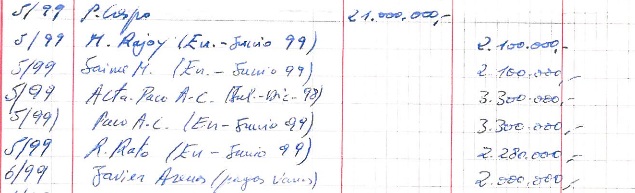 5/99 P. Crespo 21.000.000,-
5/99 M. Rajoy (En.-Junio 99) 2.100.000,-
5/99 Jaime M. (En-Junio 99) 2.100.000,-
5/99 Acta. Paco A-C. (Jul.-Dic-98) 3.300.000,-
5/99) Paco A-C. (En-Junio 99) 3.300.000,-
5/99 R. Rato (En-Junio 99) 2.280.000,-
6/99 Javier Arenas (pagos varios) 2.000.000,-